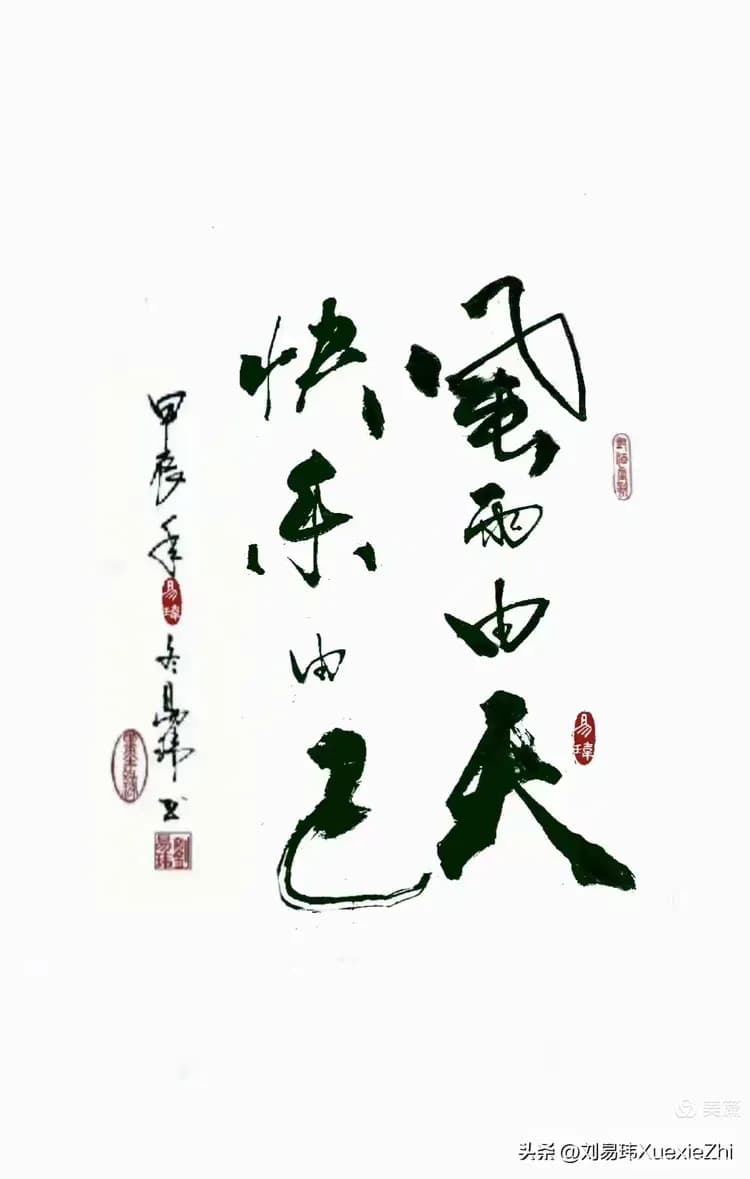 風雨由天
快乐由己
甲辰年冬易玮书
易瑋
易瑋
劉易玮
美篇
头条 @刘易玮XuexieZhi